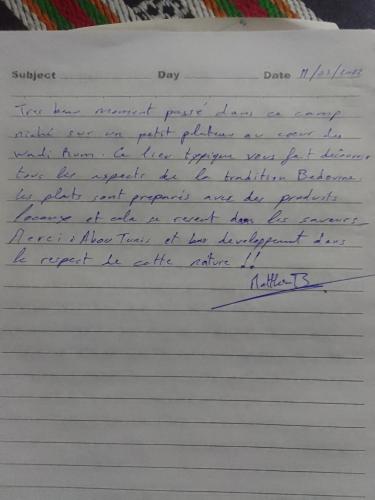 Subject Day Date 11/03/2023
Tres beau moment passé dans ce camp
niché sur un petit plateau au cœur du
Wadi Rum. Ce lieu typique vous fait découvrir
tous les aspects de la tradition Bedouine.
Les plats sont preparés avec des produits
locaux et cela se resent dans les saveurs.
Merci à Abou Tunis et bon developpement dans
le respect de cette nature !!